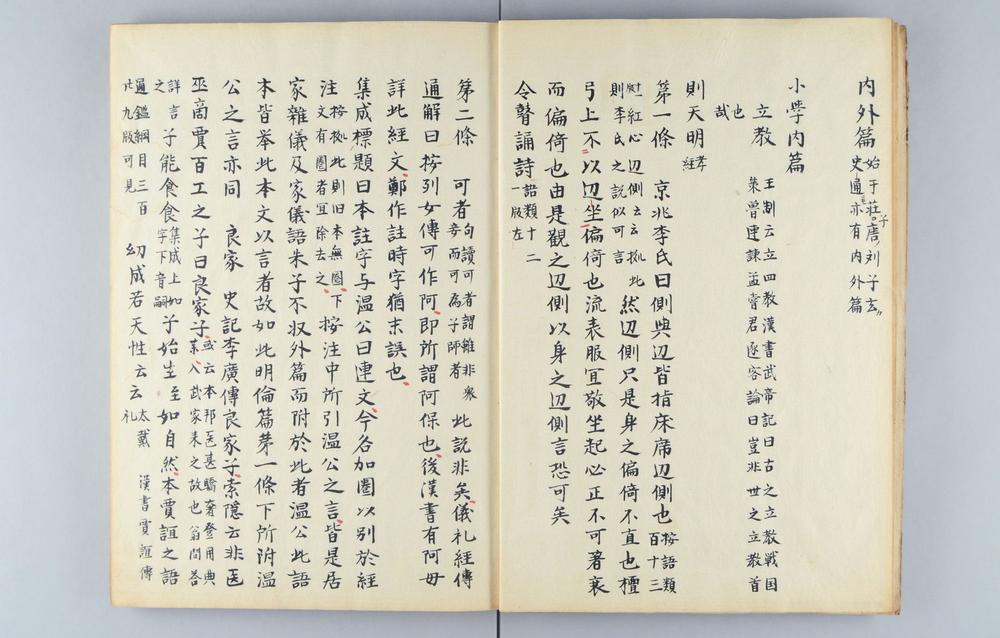 内外篇 始于荘子唐刘子玄
史通亦有内外篇
小學内篇
立教 王制云立四教漢書武帝記曰古之立教戦国
策魯連諫孟甞君逐客論曰豈非世之立教首
也
哉
則天明 孝
経
第一條 京兆李氏曰側與辺皆指床席辺側也 按語類
百十三
紅心辺側云云拠此
則李氏之説似可言 然辺側只是身之偏倚不直也檀
弓上不以辺坐偏倚也流表服冝敬坐起必正不可著衰
而偏倚也由是觀之辺側以身之辺側言恐可矣
令瞽誦詩 語類十二
一版左
第二條 可者 句讀可者謂雖非衆
妾而可為子師者 此説非矣儀礼経傳
通解曰按列女傳可作阿即所謂阿保也後漢書有阿母
詳此経文鄭作註時字猶未誤也
集成標題曰本註字与温公曰連文今各加圏以別於経
注 按拠此則旧本無圏下
文有圏者宜除去之 按注中所引温公之言皆是居
家雜儀及家儀語朱子不収外篇而附於此者温公此語
本皆举此本文以言者故如此明倫篇第一條下所附温
公之言亦同 良家 史記李廣傳良家子索隠云非医
巫商賈百工之子曰良家子 或云本邦医甚驕奢登用典
薬入武家来之故也翁問答
詳言
之 子能食食 集成上如
字下音嗣 子始生至如自然本賈誼之語
通鑑綱目三百
廿九版可見 幼成若天性云云 太戴
礼 漢書賈誼傳